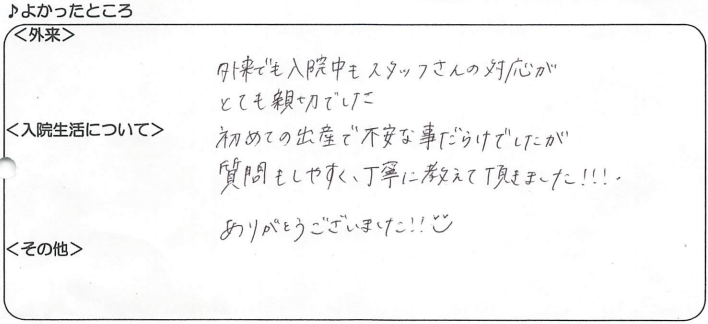 ♪よかったところ
＜外来＞
外来でも入院中もスタッフさんの対応が
とても親切でした
＜入院生活について＞
初めての出産で不安な事だらけでしたが
質問もしやすく、丁寧に教えて頂きました!!!.
ありがとうございました!!
＜その他＞